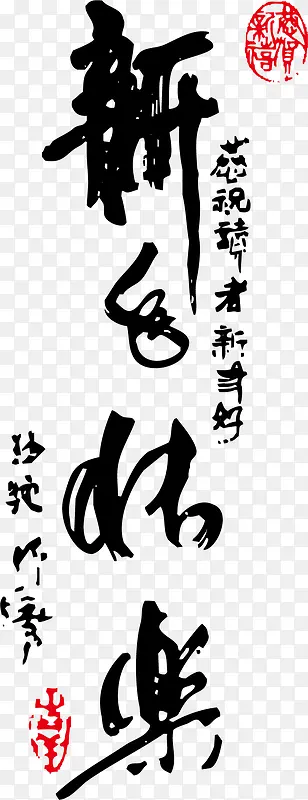 恭賀新禧
恭祝讀者新年好
新年快樂